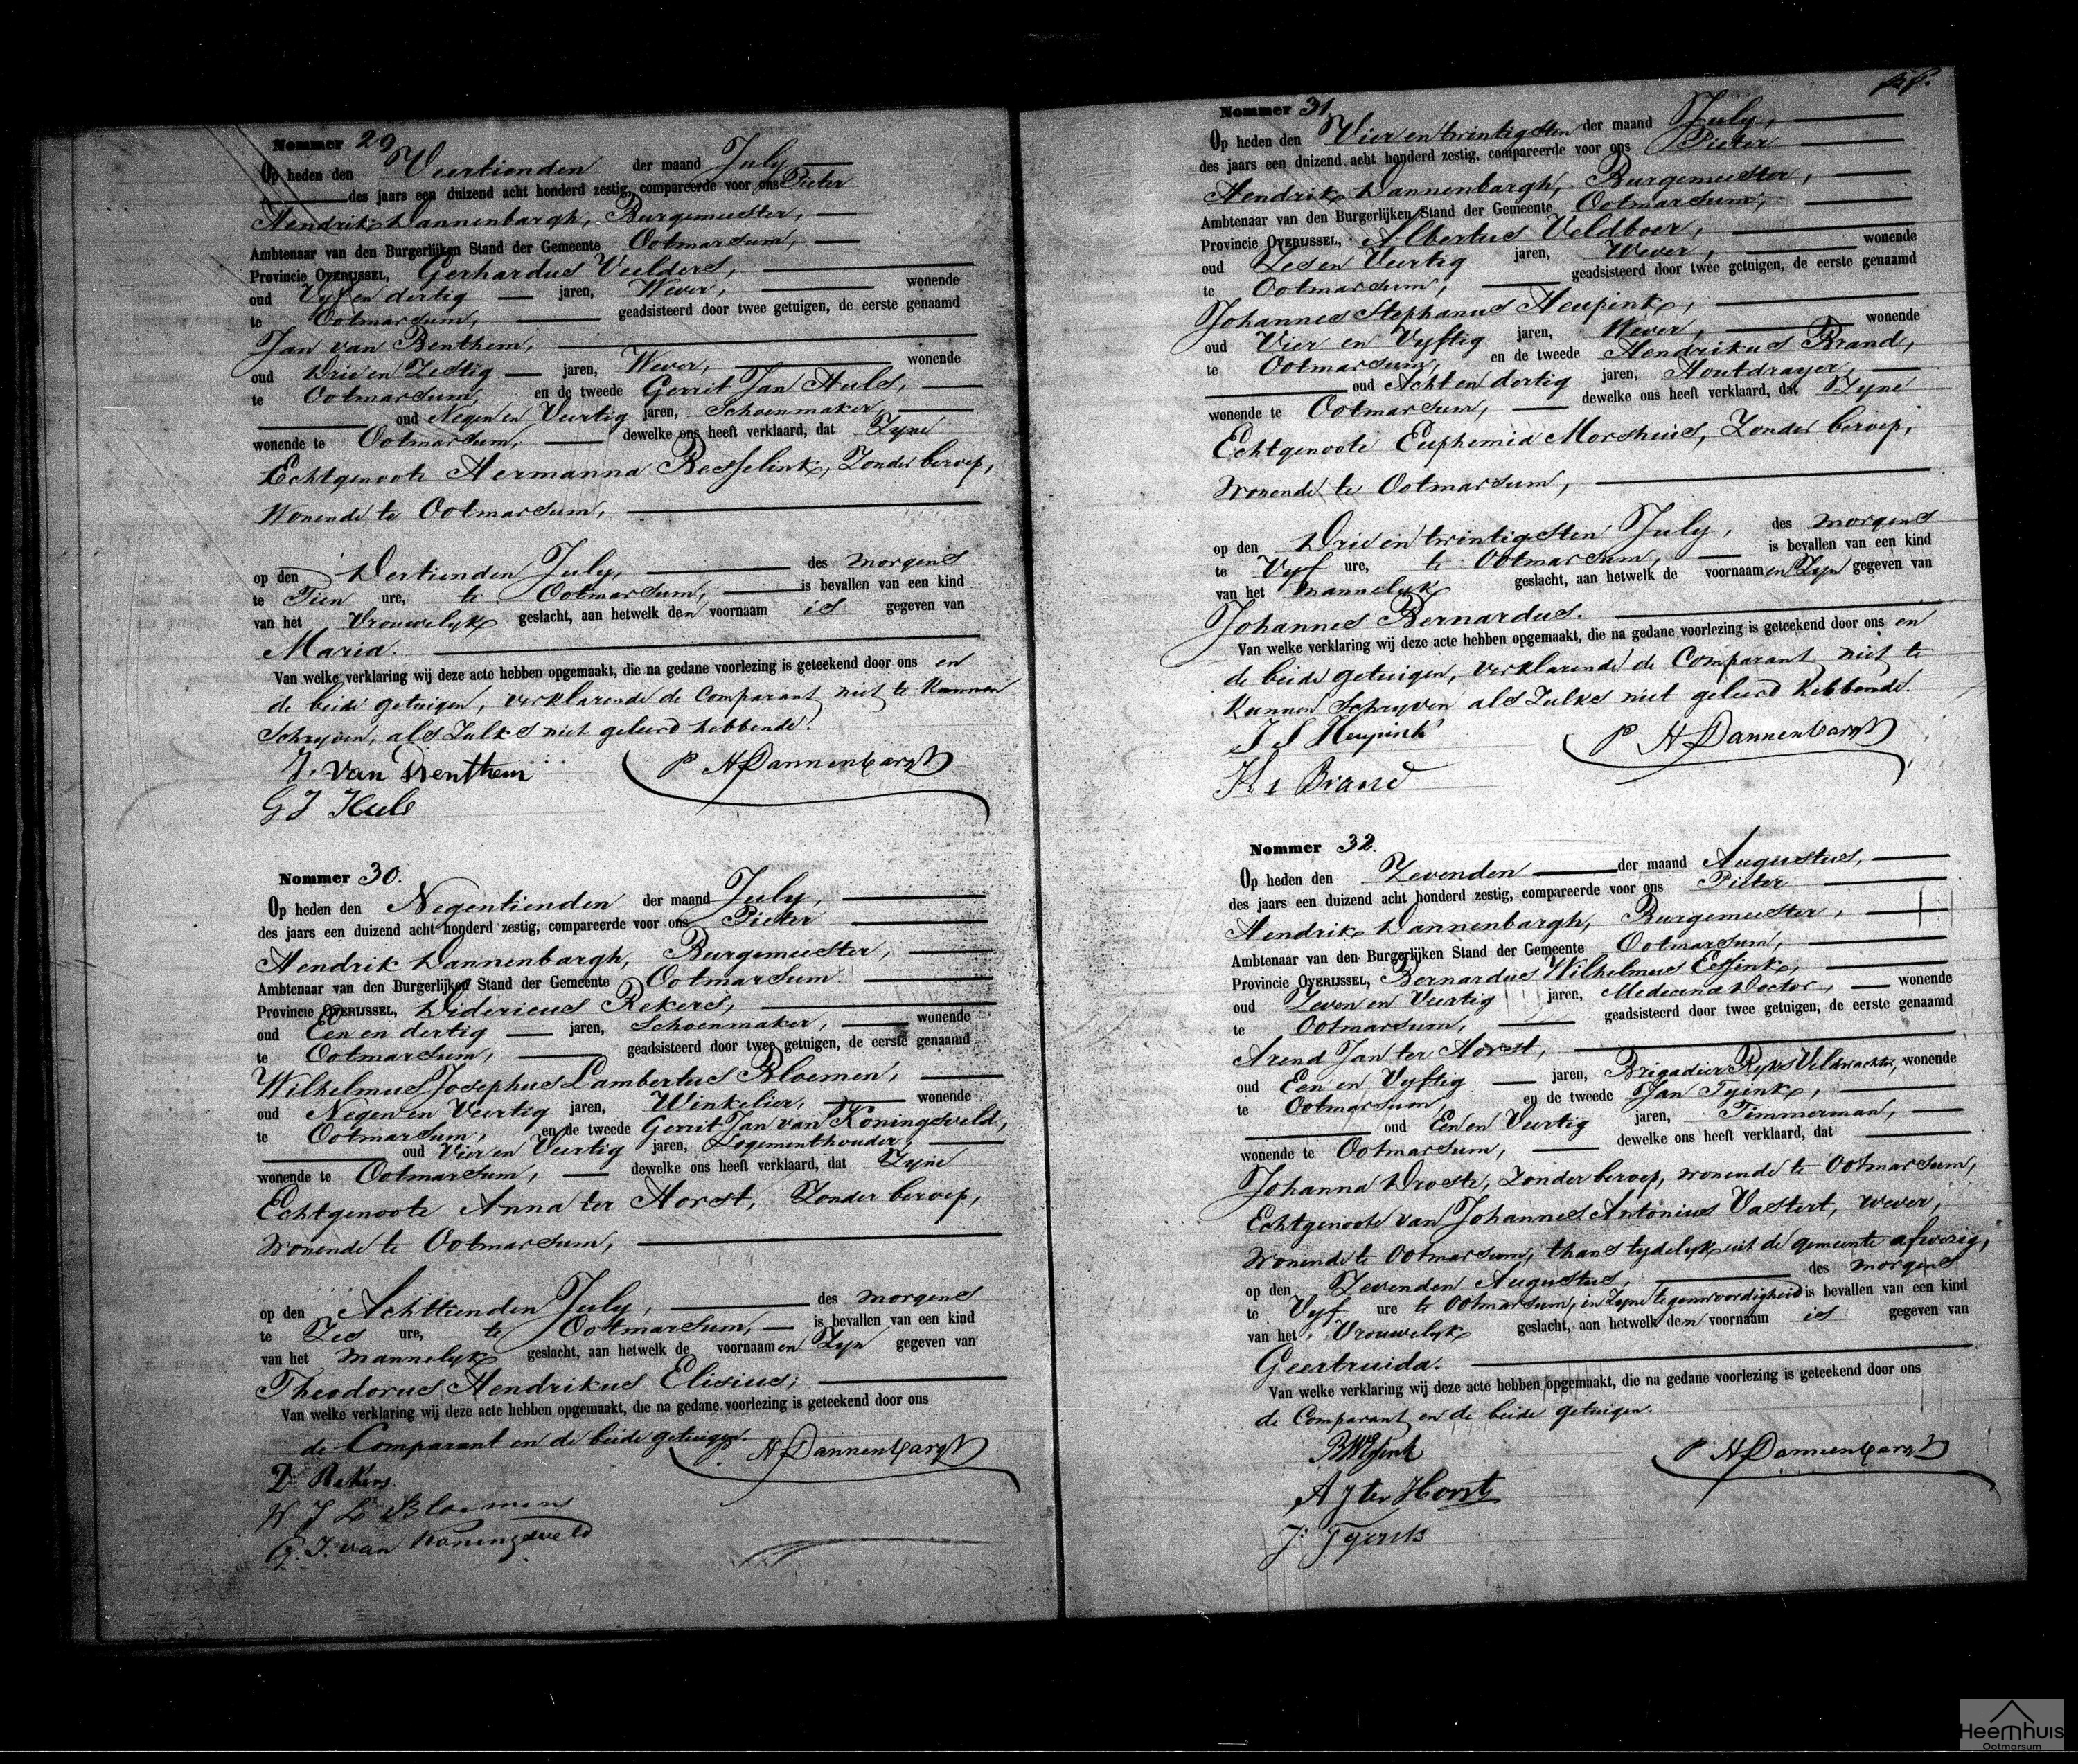 Nommer 29
Op heden den Veertienden der maand July
des jaars een duizend acht honderd zestig, compareerde voor ons Pieter
Hendrik Dannenbargh, Burgemeester,
Ambtenaar van den Burgerlijken Stand der Gemeente Ootmarsum,
Provincie OVERIJSSEL, Gerhardus Veelders,
oud Vyf en dertig jaren, Wever, wonende
te Ootmarsum, geadsisteerd door twee getuigen, de eerste genaamd
Jan van Benthem,
oud Drie en Zestig jaren, Wever, wonende
te Ootmarsum, en de tweede Gerrit Jan Huls,
oud Negen en Veertig jaren, Schoenmaker,
wonende te Ootmarsum, dewelke ons heeft verklaard, dat Zyne
Echtgenoote Hermanna Besselink, Zonder beroep,
Wonende te Ootmarsum,
op den Dertienden July, des morgens
te Tien ure, te Ootmarsum, is bevallen van een kind
van het Vrouwelyk geslacht, aan hetwelk den voornaam is gegeven van
Maria.
Van welke verklaring wij deze acte hebben opgemaakt, die na gedane voorlezing is geteekend door ons en
de beide getuigen, verklarende de Comparant niet te kunnen
Schryven, als Zulks niet geleerd hebbende.
J. van Benthem P H Dannenbargh
G J Huls
Nommer 30.
Op heden den Negentienden der maand July,
des jaars een duizend acht honderd zestig, compareerde voor ons Pieter
Hendrik Dannenbargh, Burgemeester,
Ambtenaar van den Burgerlijken Stand der Gemeente Ootmarsum.
Provincie OVERIJSSEL, Didericus Rekers,
oud Een en dertig jaren, Schoenmaker, wonende
te Ootmarsum, geadsisteerd door twee getuigen, de eerste genaamd
Wilhelmus Josephus Lambertus Bloemen,
oud Negen en Veertig jaren, Winkelier, wonende
te Ootmarsum, en de tweede Gerrit Jan van Koningsveld,
oud Vier en Veertig jaren, Logementhouder,
wonende te Ootmarsum, dewelke ons heeft verklaard, dat Zyne
Echtgenoote Anna ter Horst, Zonder beroep,
Wonende te Ootmarsum,
op den Achttienden July, des morgens
te Zes ure, te Ootmarsum, is bevallen van een kind
van het Mannelyk geslacht, aan hetwelk de voornaamen Zyn gegeven van
Theodorus Hendrikus Elisius;
Van welke verklaring wij deze acte hebben opgemaakt, die na gedane voorlezing is geteekend door ons
de Comparant en de beide getuigen.
D Rekers. P. H Dannenbargh
W. J L Bloemen
G. J. van Koningsveld
Nommer 31.
Op heden den Vier en twintigsten der maand July,
des jaars een duizend acht honderd zestig, compareerde voor ons Pieter
Hendrik Dannenbargh, Burgemeester,
Ambtenaar van den Burgerlijken Stand der Gemeente Ootmarsum,
Provincie OVERIJSSEL, Albertus Veldboer,
oud Zes en Veertig jaren, Wever, wonende
te Ootmarsum, geadsisteerd door twee getuigen, de eerste genaamd
Johannes Stephanus Heupink,
oud Vier en Vyftig jaren, Wever, wonende
te Ootmarsum, en de tweede Hendrikus Brand,
oud Acht en dertig jaren, Houtdrayer,
wonende te Ootmarsum, dewelke ons heeft verklaard, dat Zyne
Echtgenoote Euphemia Morsheus, Zonder beroep,
Wonende te Ootmarsum,
op den Drie en twintigsten July, des morgens
te Vyf ure, te Ootmarsum, is bevallen van een kind
van het mannelyk geslacht, aan hetwelk de voornaamen Zyn gegeven van
Johannes Bernardus.
Van welke verklaring wij deze acte hebben opgemaakt, die na gedane voorlezing is geteekend door ons en
de beide getuigen, verklarende de Comparant niet te
Kunnen Schryven als Zulks niet geleerd hebbende.
J S Heupink P H Dannenbargh
Hs Brand
Nommer 32.
Op heden den Zevenden der maand Augustus,
des jaars een duizend acht honderd zestig, compareerde voor ons Pieter
Hendrik Dannenbargh, Burgemeester,
Ambtenaar van den Burgerlijken Stand der Gemeente Ootmarsum,
Provincie OVERIJSSEL, Bernardus Wilhelmus Essink,
oud Zeven en Veertig jaren, Medecina Doctor, wonende
te Ootmarsum, geadsisteerd door twee getuigen, de eerste genaamd
Arend Jan ter Horst,
oud Een en Vyftig jaren, Brigadier Ryks Veldwachter, wonende
te Ootmarsum, en de tweede Jan Tyink,
oud Een en Veertig jaren, Timmerman,
wonende te Ootmarsum, dewelke ons heeft verklaard, dat
Johanna Droste, Zonder beroep, wonende te Ootmarsum,
Echtgenoote van Johannes Antonius Vastert, wever,
Wonende te Ootmarsum, thans tydelyk uit de gemeente afwezig,
op den Zevenden Augustus, des morgens
te Vyf ure te Ootmarsum, in Zyne tegenwoordigheid is bevallen van een kind
van het Vrouwelyk geslacht, aan hetwelk den voornaam is gegeven van
Geertruida.
Van welke verklaring wij deze acte hebben opgemaakt, die na gedane voorlezing is geteekend door ons
de Comparant en de beide getuigen.
BWEssink P H Dannenbargh
A J ter Horst
J: Tyink
Heemhuis
Ootmarsum